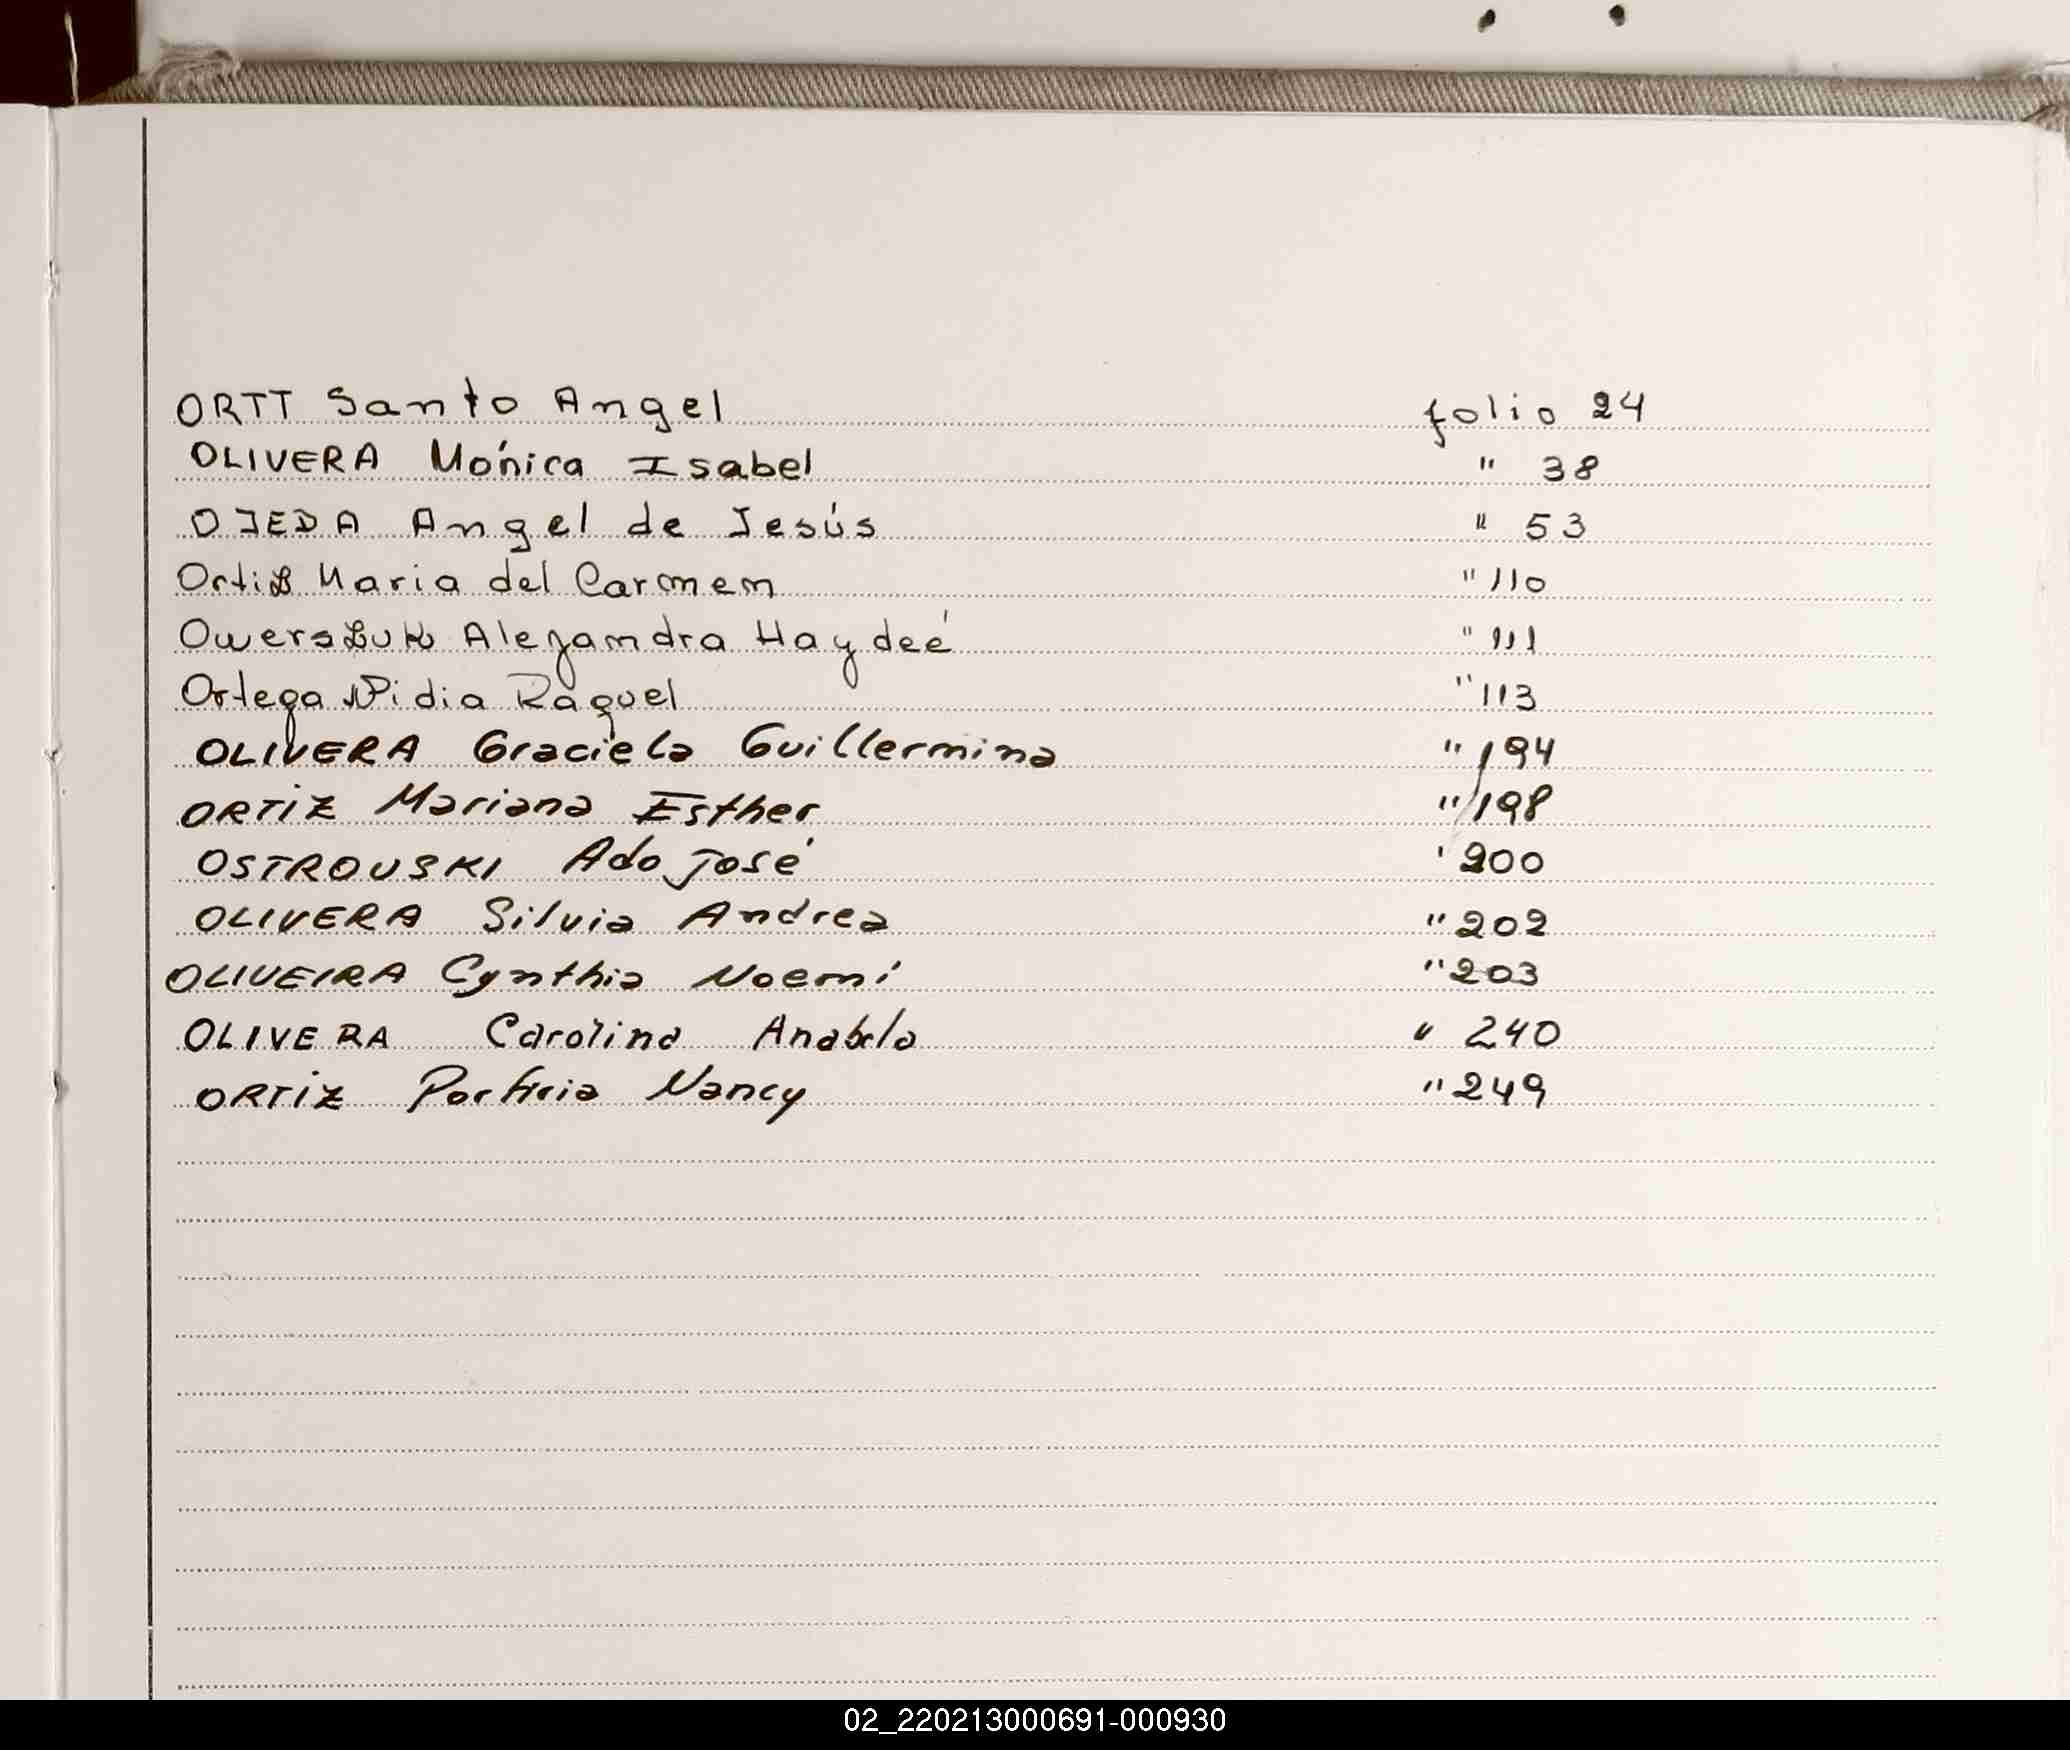 ORTT Santo Angel folio 24
OLIVERA Mónica Isabel " 38
OJEDA Angel de Jesús " 53
Ortiz Maria del Carmen " 110
Owerszuk Alejandra Haydeé " 111
Ortega Nidia Raquel " 113
OLIVERA Graciela Guillermina " 194
ORTIZ Mariana Esther " 198
OSTROUSKI Ado José ' 200
OLIVERA Silvia Andrea " 202
OLIVEIRA Cynthia Noemí " 203
OLIVERA Carolina Anabela " 240
ORTIZ Porfiria Nancy " 249
02_220213000691-000930